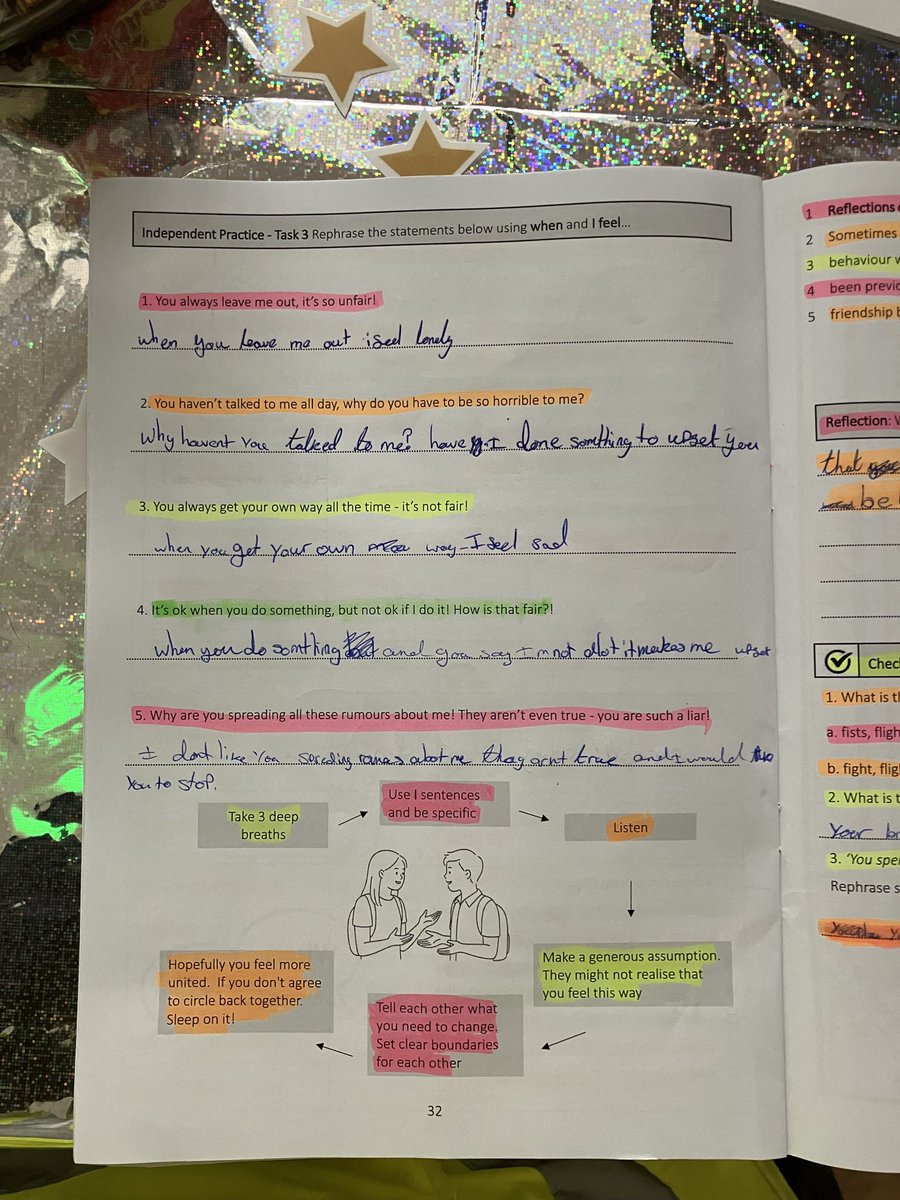 Independent Practice - Task 3 Rephrase the statements below using when and I feel...
1. You always leave me out, it's so unfair!
when you leave me out i feel lonely
2. You haven't talked to me all day, why do you have to be so horrible to me?
Why havent you talked to me? have I done somthing to upset you
3. You always get your own way all the time - it's not fair!
when you get your own way I feel sad
4. It's ok when you do something, but not ok if I do it! How is that fair?!
When you do somthing and you say I'm not it makes me upset
5. Why are you spreading all these rumours about me! They aren't even true - you are such a liar!
I dont like you about me they arnt true and I would
You to stop.
Take 3 deep
breaths
Use I sentences
and be specific
Listen
Make a generous assumption.
They might not realise that
you feel this way
Tell each other what
you need to change.
Set clear boundaries
for each other
Hopefully you feel more
united. If you don't agree
to circle back together.
Sleep on it!
32
1 Reflections
2 Sometimes
3 behaviour
4 been
5 friendship
Reflection:
that
be
1. What is
a. fists,
b. fight,
2. What is
Your
3. 'You
Rephrase